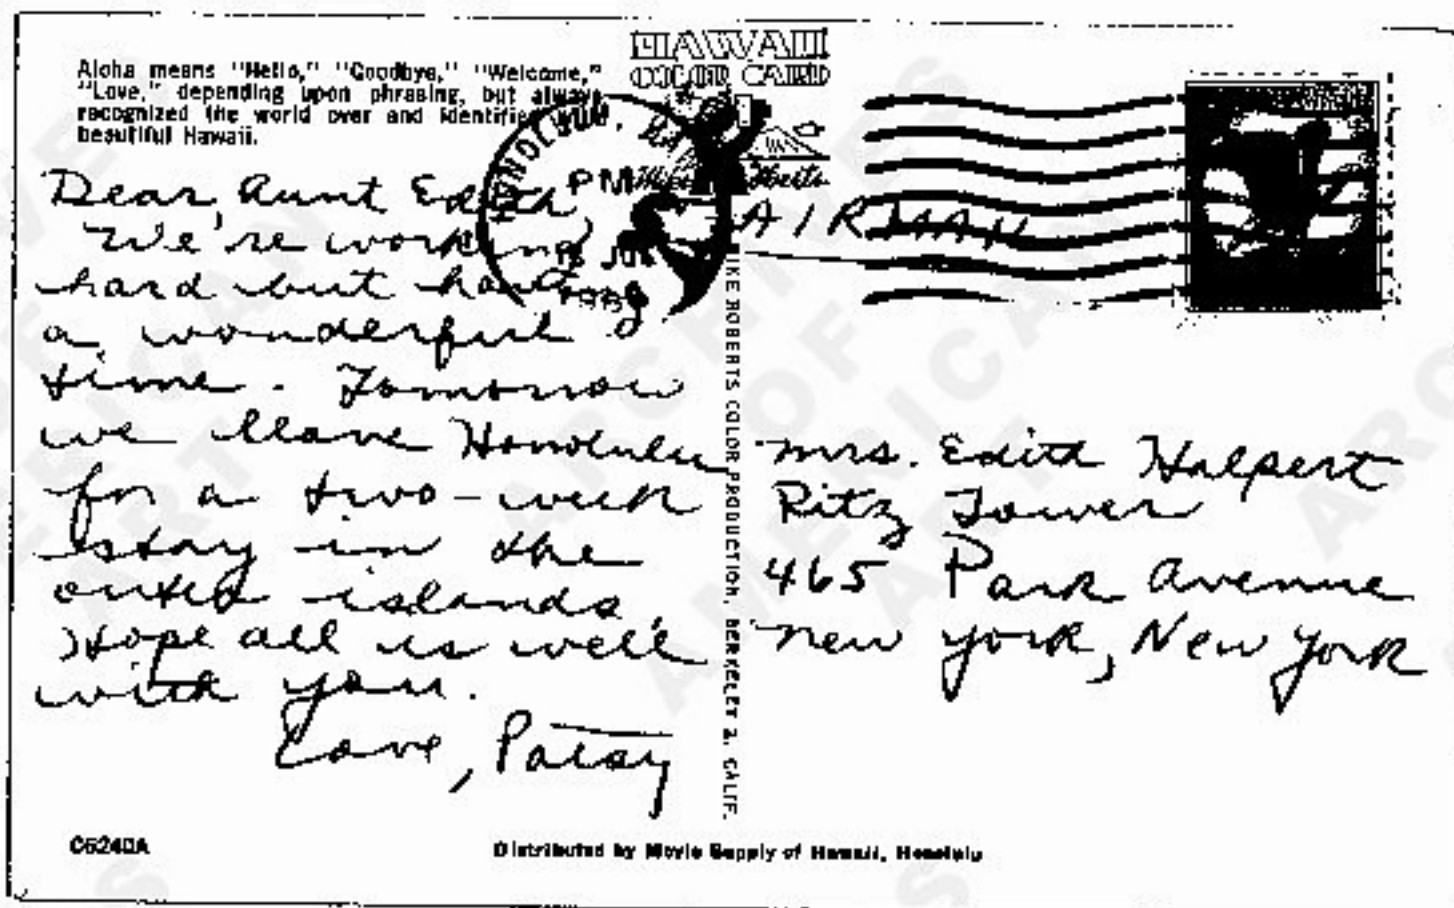 HAWAII
COLOR CARD
Aloha means "Hello," "Goodbye," "Welcome,"
"Love," depending upon phrasing, but always
recognized the world over and identified with
beautiful Hawaii.
HONOLULU,
PM
Mike Roberts
AIRMAIL
Dear Aunt Edith,
We're working
hard but having
a wonderful
time. Tomorrow
we leave Honolulu
for a two-week
stay in the
outer islands.
Hope all is well
with you.
Love, Patsy
MIKE ROBERTS COLOR PRODUCTION, BERKELEY 2, CALIF.
Mrs. Edith Halpert
Ritz Tower
465 Park Avenue
New York, New York
C6240A
Distributed by Movie Supply of Hawaii, Honolulu
ARCHIVES OF
AMERICAN ART